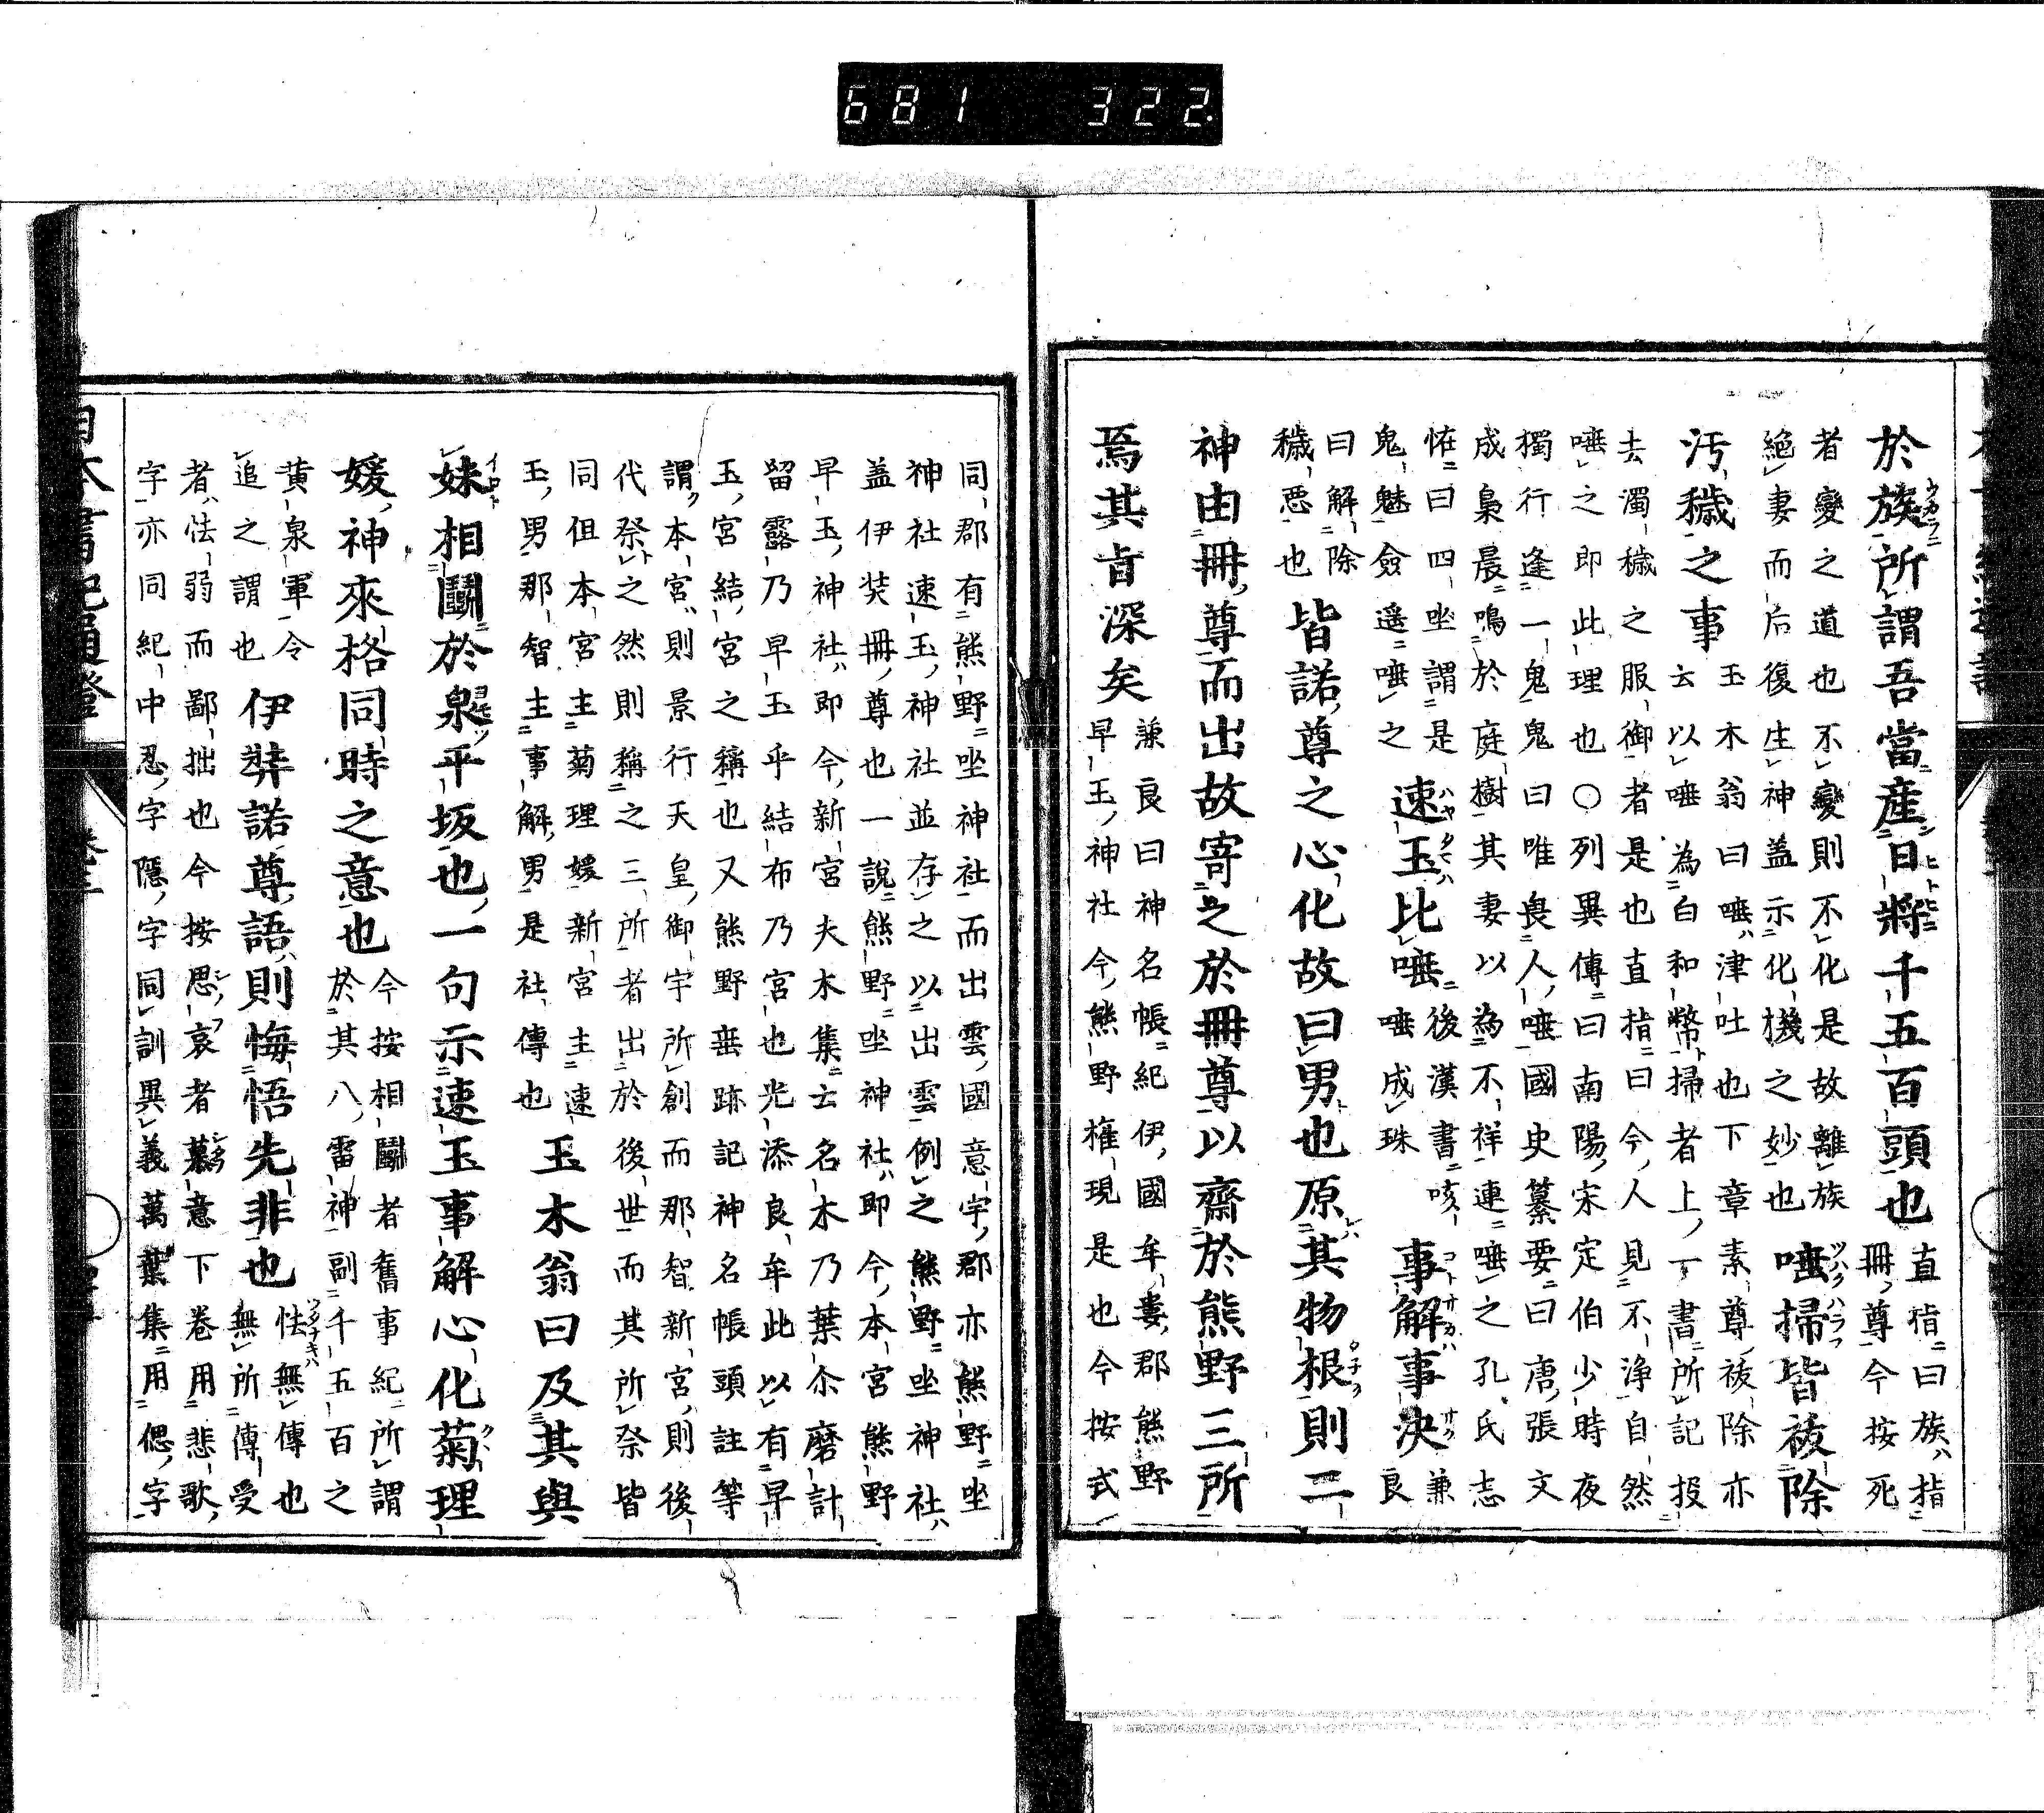 681 322
於族所謂吾當産日將千五百頭也
直指曰族指
冊尊今按死
者變之道也不變則不化是故離族
絶妻而后復生神盖示化機之妙也
唾掃皆祓除
汚穢之事
玉木翁曰唾津吐也下章素尊祓除亦
云以唾為白和幣掃者上一書所記投
去濁穢之服御者是也直指曰今人見不浄自然
唾之即此理也○列異傳曰南陽宋定伯少時夜
獨行逢一鬼鬼曰唯畏人唾國史纂要曰唐張文
成梟晨鳴於庭樹其妻以為不祥連唾之孔氏志
恠曰四坐謂是
鬼魅僉遥唾之
速玉比唾
後漢書咳
唾成珠
事解事決
兼
良
曰解除
穢惡也
皆諾尊之心化故曰男也原其物根則二
神由冊尊而出故寄之於冊尊以齋於熊野三所
焉其旨深矣
兼良曰神名帳紀伊國牟婁郡熊野
早玉神社今熊野権現是也今按式
同郡有熊野坐神社而出雲國意宇郡亦熊野坐
神社速玉神社並存之以出雲例之熊野坐神社
盖伊弉冊尊也一說熊野坐神社即今本宮熊野
早玉神社即今新宮夫木集云名木乃葉尒磨計
留露乃早玉乎結布乃宮也光添良牟此以有早
玉宮結宮之稱也又熊野垂跡記神名帳頭註等
謂本宮則景行天皇御宇所創而那智新宮則後
代祭之然則稱之三所者出於後世而其所祭皆
同但本宮主菊理媛新宮主速
玉男那智主事解男是社傳也
玉木翁曰及其與
妹相鬪於泉平坂也一句示速玉事解心化菊理
媛神來格同時之意也
今按相鬪者舊事紀所謂
於其八雷神副千五百之
黄泉軍令
追之謂也
伊弉諾尊語則悔悟先非也
怯無傳也
無所傳受
者怯弱而鄙拙也今按思哀者慕意下卷用悲歌
字亦同紀中忍字隱字同訓異義萬葉集用偲字
日本書紀通證